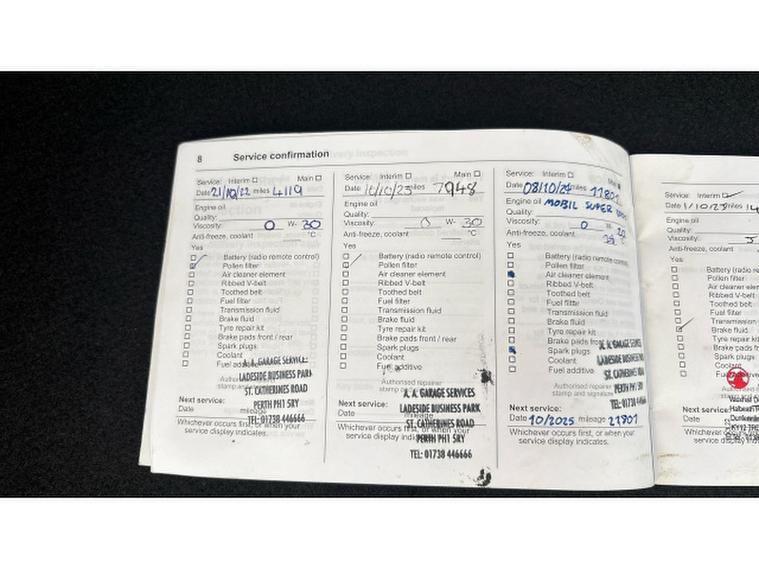 8 Service confirmation
Service: Interim Main
Date 21/10/22 miles 4119
Engine oil
Quality:
Viscosity: 0 W- 30
Anti-freeze, coolant °C
Yes
Battery (radio remote control)
Pollen filter
Air cleaner element
Ribbed V-belt
Toothed belt
Fuel filter
Transmission fluid
Brake fluid
Tyre repair kit
Brake pads front / rear
Spark plugs
Coolant
Fuel additive
A. A. GARAGE SERVICES
LADESIDE BUSINESS PARK
ST. CATHERINES ROAD
PERTH PH1 5RY
TEL: 01738 446666
Authorised repairer
stamp and signature
Next service:
Date mileage
Whichever occurs first, or when your
service display indicates.
Service: Interim Main
Date 10/23 miles 7948
Engine oil
Quality:
Viscosity: 0 W- 30
Anti-freeze, coolant °C
Yes
Battery (radio remote control)
Pollen filter
Air cleaner element
Ribbed V-belt
Toothed belt
Fuel filter
Transmission fluid
Brake fluid
Tyre repair kit
Brake pads front / rear
Spark plugs
Coolant
Fuel additive
Authorised repairer
stamp and signature
A. A. GARAGE SERVICES
LADESIDE BUSINESS PARK
ST. CATHERINES ROAD
PERTH PH1 5RY
TEL: 01738 446666
Next service:
Date mileage
Whichever occurs first, or when your
service display indicates.
Service: Interim Main
Date 08/10/24 miles 11801
Engine oil MOBIL SUPER
Quality:
Viscosity: 0 W- 20
Anti-freeze, coolant °C
Yes
Battery (radio remote control)
Pollen filter
Air cleaner element
Ribbed V-belt
Toothed belt
Fuel filter
Transmission fluid
Brake fluid
Tyre repair kit
Brake pads front
Spark plugs
Coolant
Fuel additive
A. A. GARAGE SERVICES
LADESIDE BUSINESS
ST. CATHERINES ROAD
PERTH PH1 5RY
TEL: 01738
Authorised repairer
stamp and signature
Next service:
Date 10/2025 mileage 21801
Whichever occurs first, or when your
service display indicates.
Service: Interim
Date 1/10/25 miles
Engine oil
Quality:
Viscosity:
Anti-freeze, coolant
Yes
Battery
Pollen filter
Air cleaner
Ribbed V-belt
Toothed belt
Fuel filter
Transmission
Brake fluid
Tyre repair kit
Brake pads
Spark plugs
Coolant
Fuel additive
Next service:
Date
Whichever occurs
service display